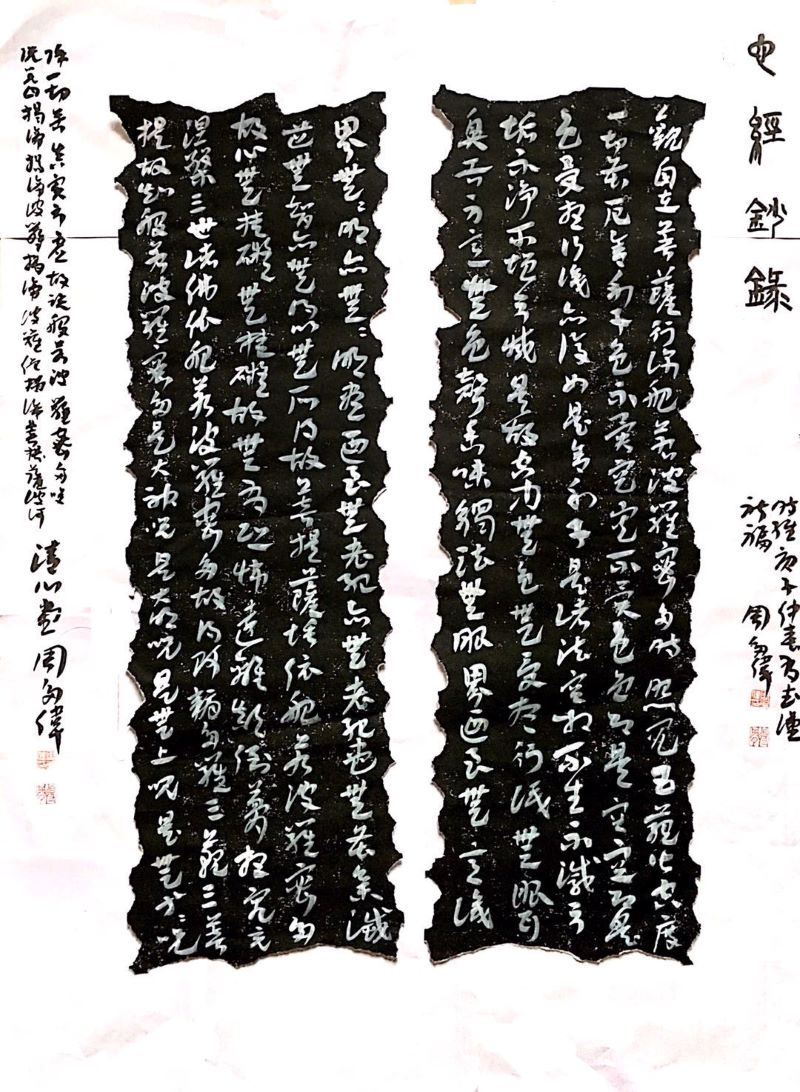 心經鈔錄
觀自在菩薩行深般若波羅蜜多時照見五蘊皆空度
一切苦厄舍利子色不異空空不異色色即是空空即是
色受想行識亦復如是舍利子是諸法空相不生不滅不
垢不淨不增不減是故空中無色無受想行識無眼耳
鼻舌身意無色聲香味觸法無眼界乃至無意識
界無無明亦無無明盡乃至無老死亦無老死盡無苦集滅
道無智亦無得以無所得故菩提薩埵依般若波羅蜜多
故心無罣礙無罣礙故無有恐怖遠離顛倒夢想究竟
涅槃三世諸佛依般若波羅蜜多故得阿耨多羅三藐三菩
提故知般若波羅蜜多是大神咒是大明咒是無上咒是無等等咒
除一切苦真實不虛故說般若波羅蜜多咒
說咒曰揭諦揭諦波羅揭諦波羅僧揭諦菩提薩婆訶
清心堂周偉
時維庚子仲春
祈福周偉